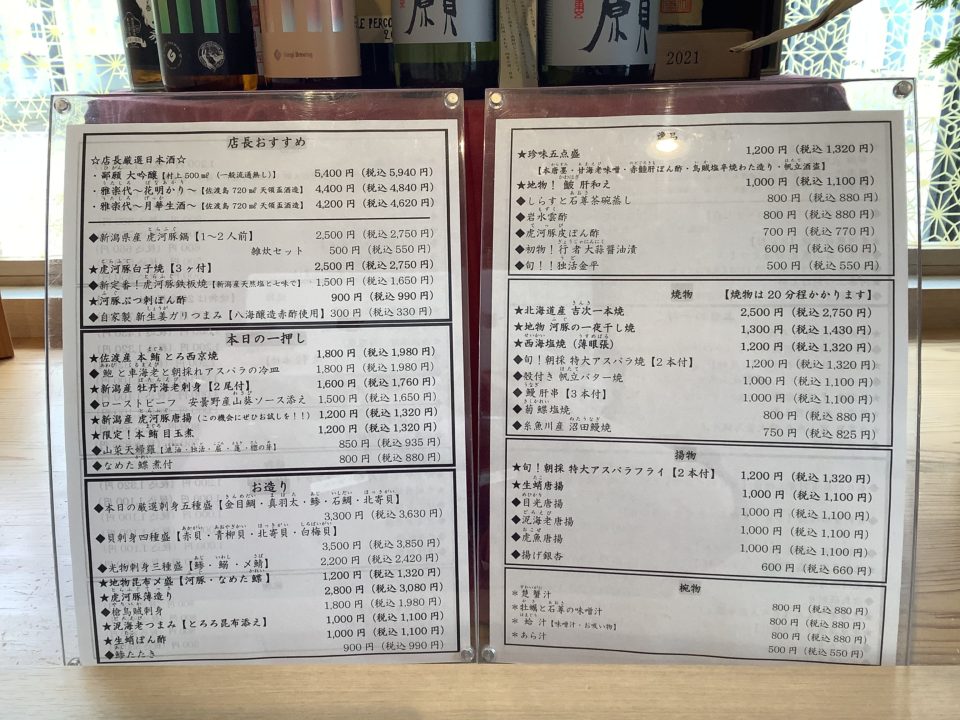 原
貝
原
2021
店長おすすめ
☆店長厳選日本酒☆
・鄙願 大吟醸【村上500㎖(一般流通無し)】 5,400円(税込5,940円)
・雅楽代～花明かり～【佐渡島720㎖天領盃酒造】 4,400円(税込4,840円)
・雅楽代～月華生酒～【佐渡島720㎖天領盃酒造】 4,200円(税込4,620円)
◆新潟県産 虎河豚鍋【1～2人前】 2,500円(税込2,750円)
雑炊セット 500円(税込550円)
★虎河豚白子焼【3ヶ付】 2,500円(税込2,750円)
◆新定番！虎河豚鉄板焼【新潟産天然塩と七味で】 1,500円(税込1,650円)
★河豚ぶつ刺ぽん酢 900円(税込990円)
◆自家製 新生姜ガリつまみ【八海醸造赤酢使用】 300円(税込330円)
本日の一押し
★佐渡産 本鮪とろ西京焼 1,800円(税込1,980円)
◆鮑と車海老と朝採れアスパラの冷皿 1,800円(税込1,980円)
★新潟産 牡丹海老刺身【2尾付】 1,600円(税込1,760円)
◆ローストビーフ 安曇野産山葵ソース添え 1,500円(税込1,650円)
★新潟産 虎河豚唐揚(この機会にぜひお試しを！！) 1,200円(税込1,320円)
★限定！本鮪目玉煮 1,200円(税込1,320円)
◆山菜天婦羅 850円(税込935円)
◆なめた鰈煮付 800円(税込880円)
お造り
◆本日の厳選刺身五種盛【金目鯛・真羽太・鯵・石鯛・北寄貝】
3,300円(税込3,630円)
◆貝刺身四種盛【赤貝・青柳貝・北寄貝・白梅貝】
3,500円(税込3,850円)
◆光物刺身三種盛【鯵・鰯・〆鯖】 2,200円(税込2,420円)
★地物昆布〆盛【河豚・なめた鰈】 1,200円(税込1,320円)
★虎河豚薄造り 2,800円(税込3,080円)
◆槍烏賊刺身 1,800円(税込1,980円)
★泥海老つまみ【とろろ昆布添え】 1,000円(税込1,100円)
★生蛸ぽん酢 1,000円(税込1,100円)
◆鯵たたき 900円(税込990円)
逸品
★珍味五点盛 1,200円(税込1,320円)
【本唐墨・甘海老味噌・赤鱏肝ぽん酢・烏賊塩辛焼わた造り・帆立酒盗】
★地物！鮍肝和え 1,000円(税込1,100円)
◆しらすと石蓴茶碗蒸し 800円(税込880円)
◆岩水雲酢 800円(税込880円)
◆虎河豚皮ぽん酢 700円(税込770円)
◆初物！行者大蒜醤油漬 600円(税込660円)
◆旬！！独活金平 500円(税込550円)
焼物 【焼物は20分程かかります】
★北海道産 吉次一本焼 2,500円(税込2,750円)
★地物 河豚の一夜干し焼 1,300円(税込1,430円)
★西海塩焼(薄眼張) 1,200円(税込1,320円)
◆旬！朝採 特大アスパラ焼【2本付】 1,200円(税込1,320円)
◆殻付き 帆立バター焼 1,000円(税込1,100円)
◆鰻肝串【3本付】 1,000円(税込1,100円)
◆菊鰈塩焼 800円(税込880円)
◆糸魚川産 沼田鰻焼 750円(税込825円)
揚物
★旬！朝採 特大アスパラフライ【2本付】 1,200円(税込1,320円)
★生蛸唐揚 1,000円(税込1,100円)
◆目光唐揚 1,000円(税込1,100円)
◆泥海老唐揚 1,000円(税込1,100円)
◆虎魚唐揚 1,000円(税込1,100円)
◆揚げ銀杏 600円(税込660円)
椀物
＊楚蟹汁 800円(税込880円)
＊牡蠣と石蓴の味噌汁 800円(税込880円)
＊蛤汁【味噌汁・お吸い物】 800円(税込880円)
＊あら汁 500円(税込550円)